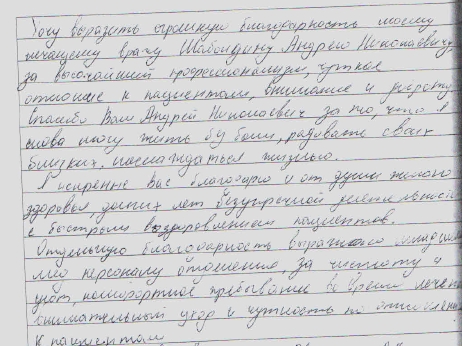 Хочу выразить огромную благодарность моему
лечащему врачу Андрею Николаевичу
за высочайший профессионализм, чуткое
отношение к пациентам, внимание и доброту.
Спасибо Вам Андрей Николаевич за то, что я
снова могу жить без боли, радовать своих
близких, наслаждаться жизнью.
Я искренне Вас благодарю и от души желаю
здоровья, долгих лет безупречной деятельности
с быстрым выздоровлением пациентов.
Отдельную благодарность выражаю младшему
персоналу отделения, за чистоту и
уют, комфортное пребывание во время лечения
внимательный уход и чуткость по отношению
к пациентам